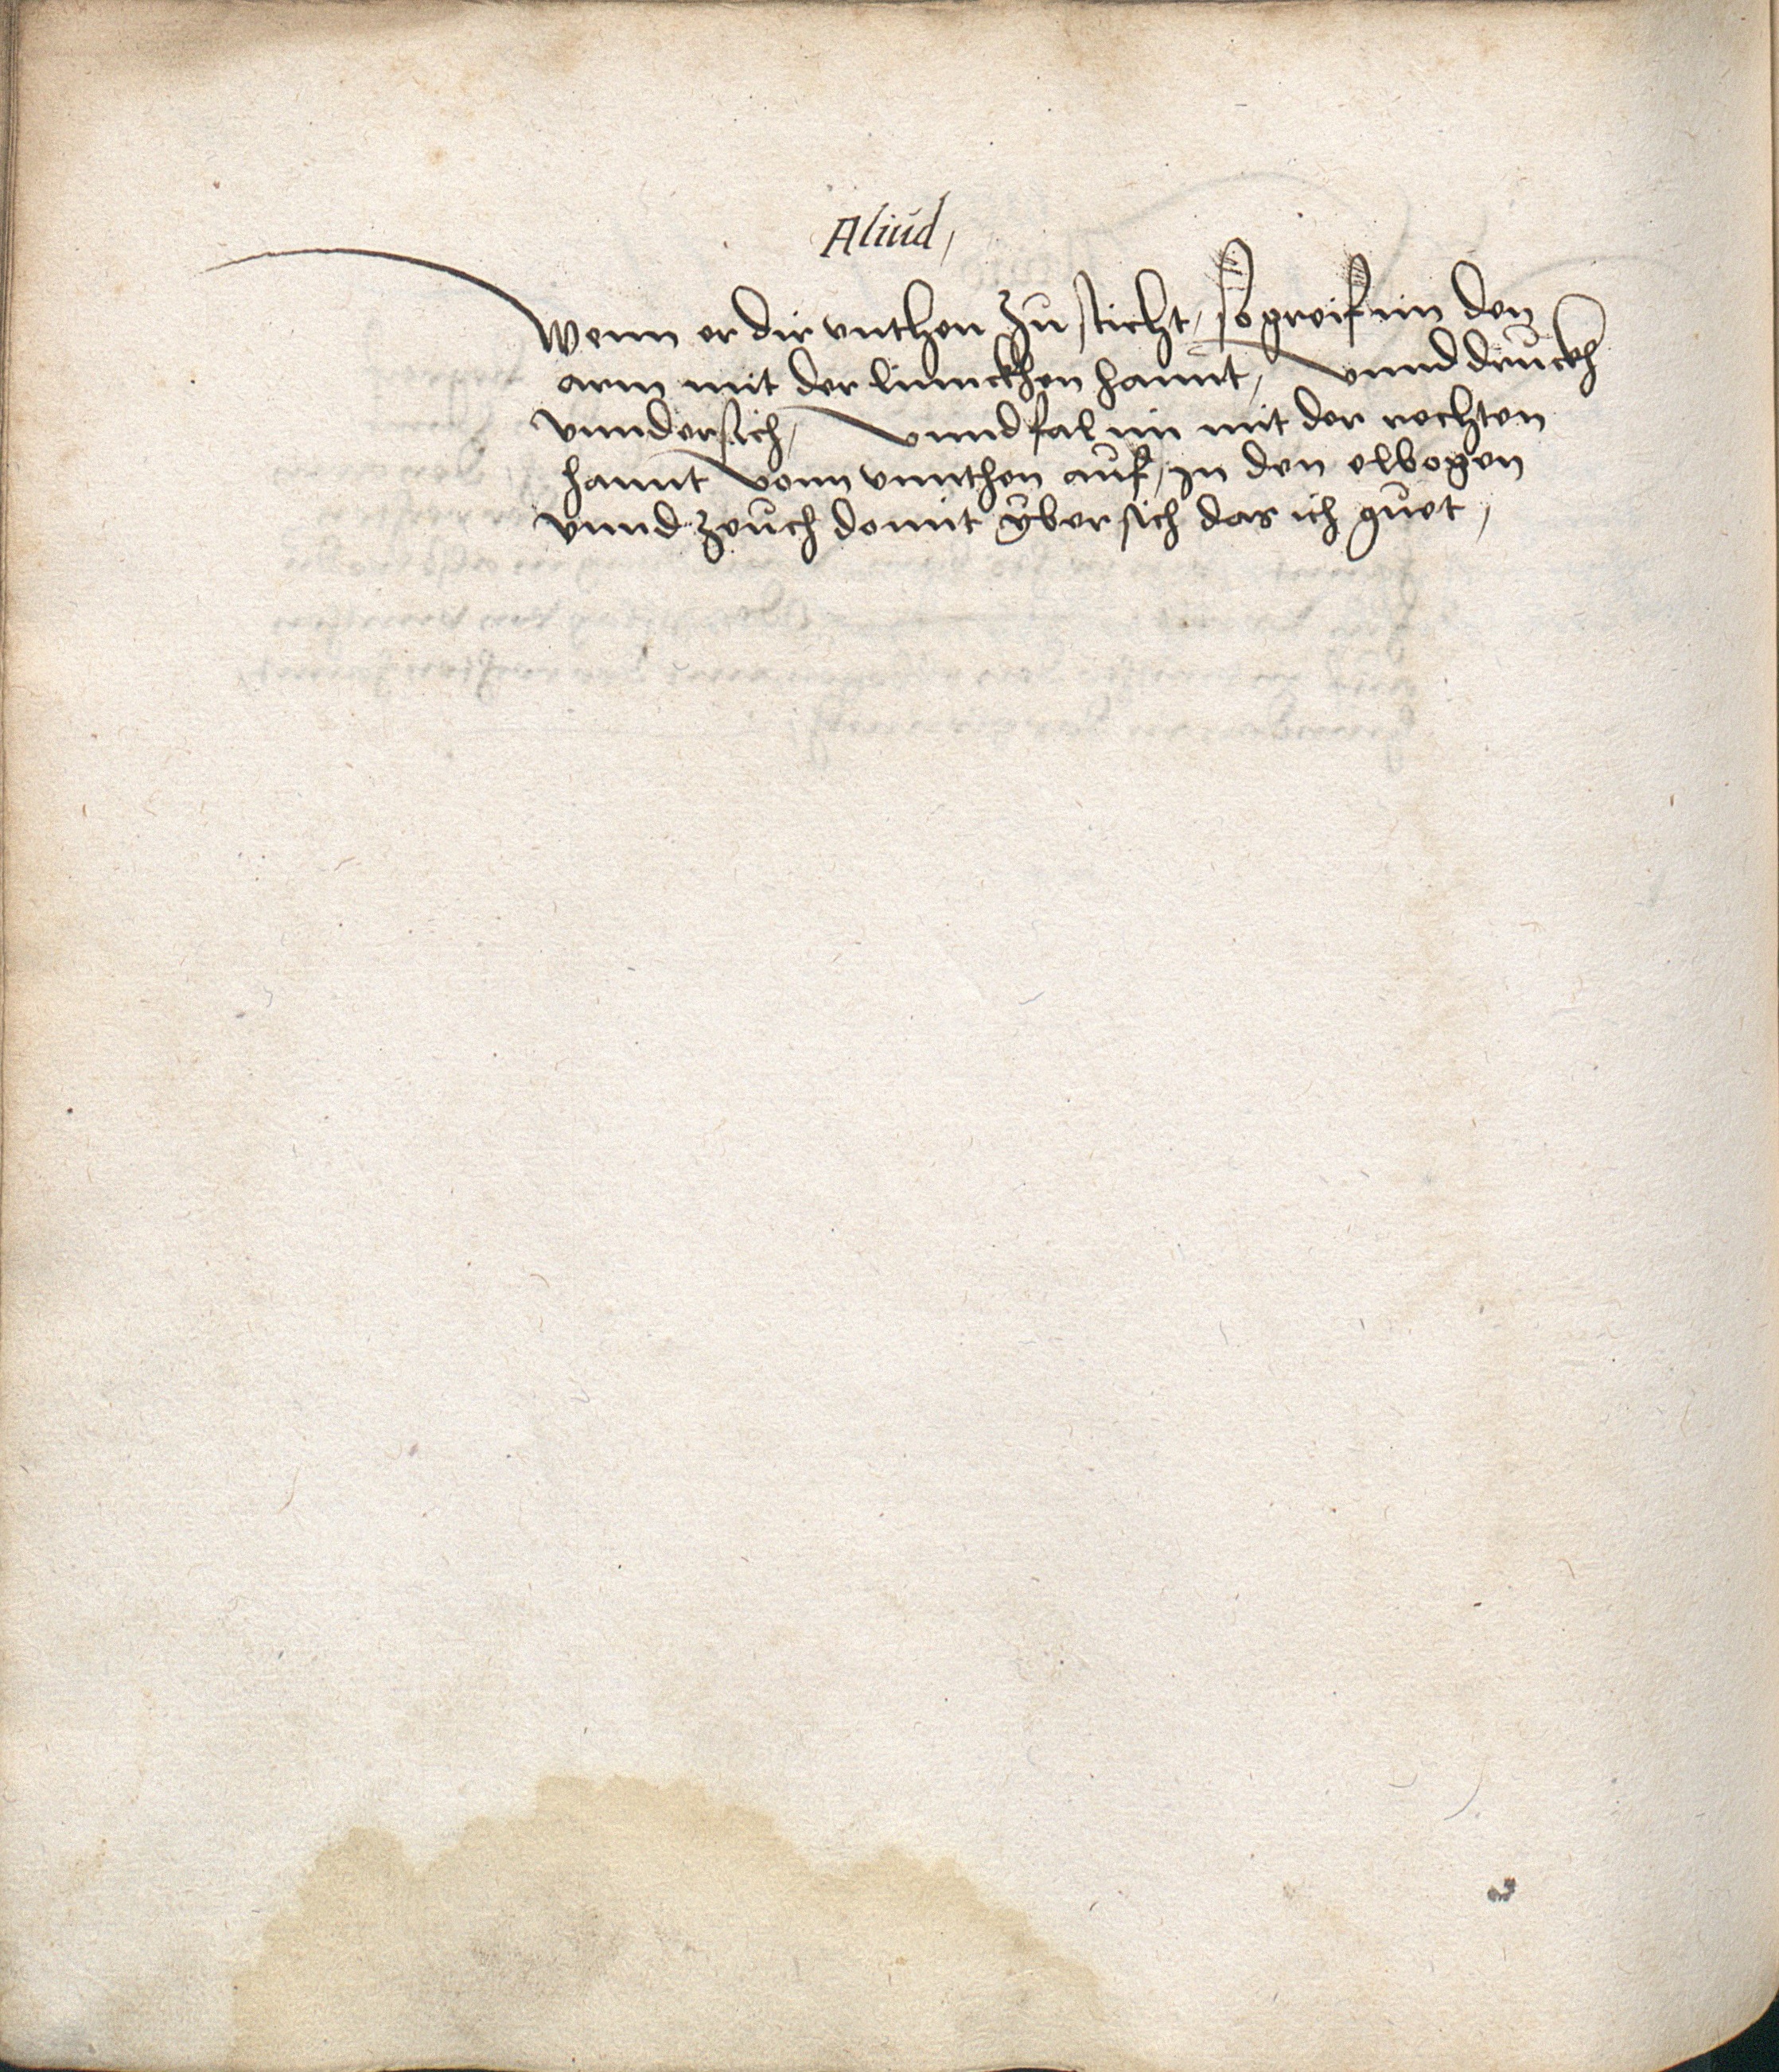 Aliud,
Wenn er dir vnthen zu sticht, so greif im den
arm mit der linnckhen hannt, vnnd druckh
vnndersich, vnnd fal im mit der rechten
hannt vonn vnnthen auf, in den elbogen
vnnd zeuch domit ÿbersich das ich guet,